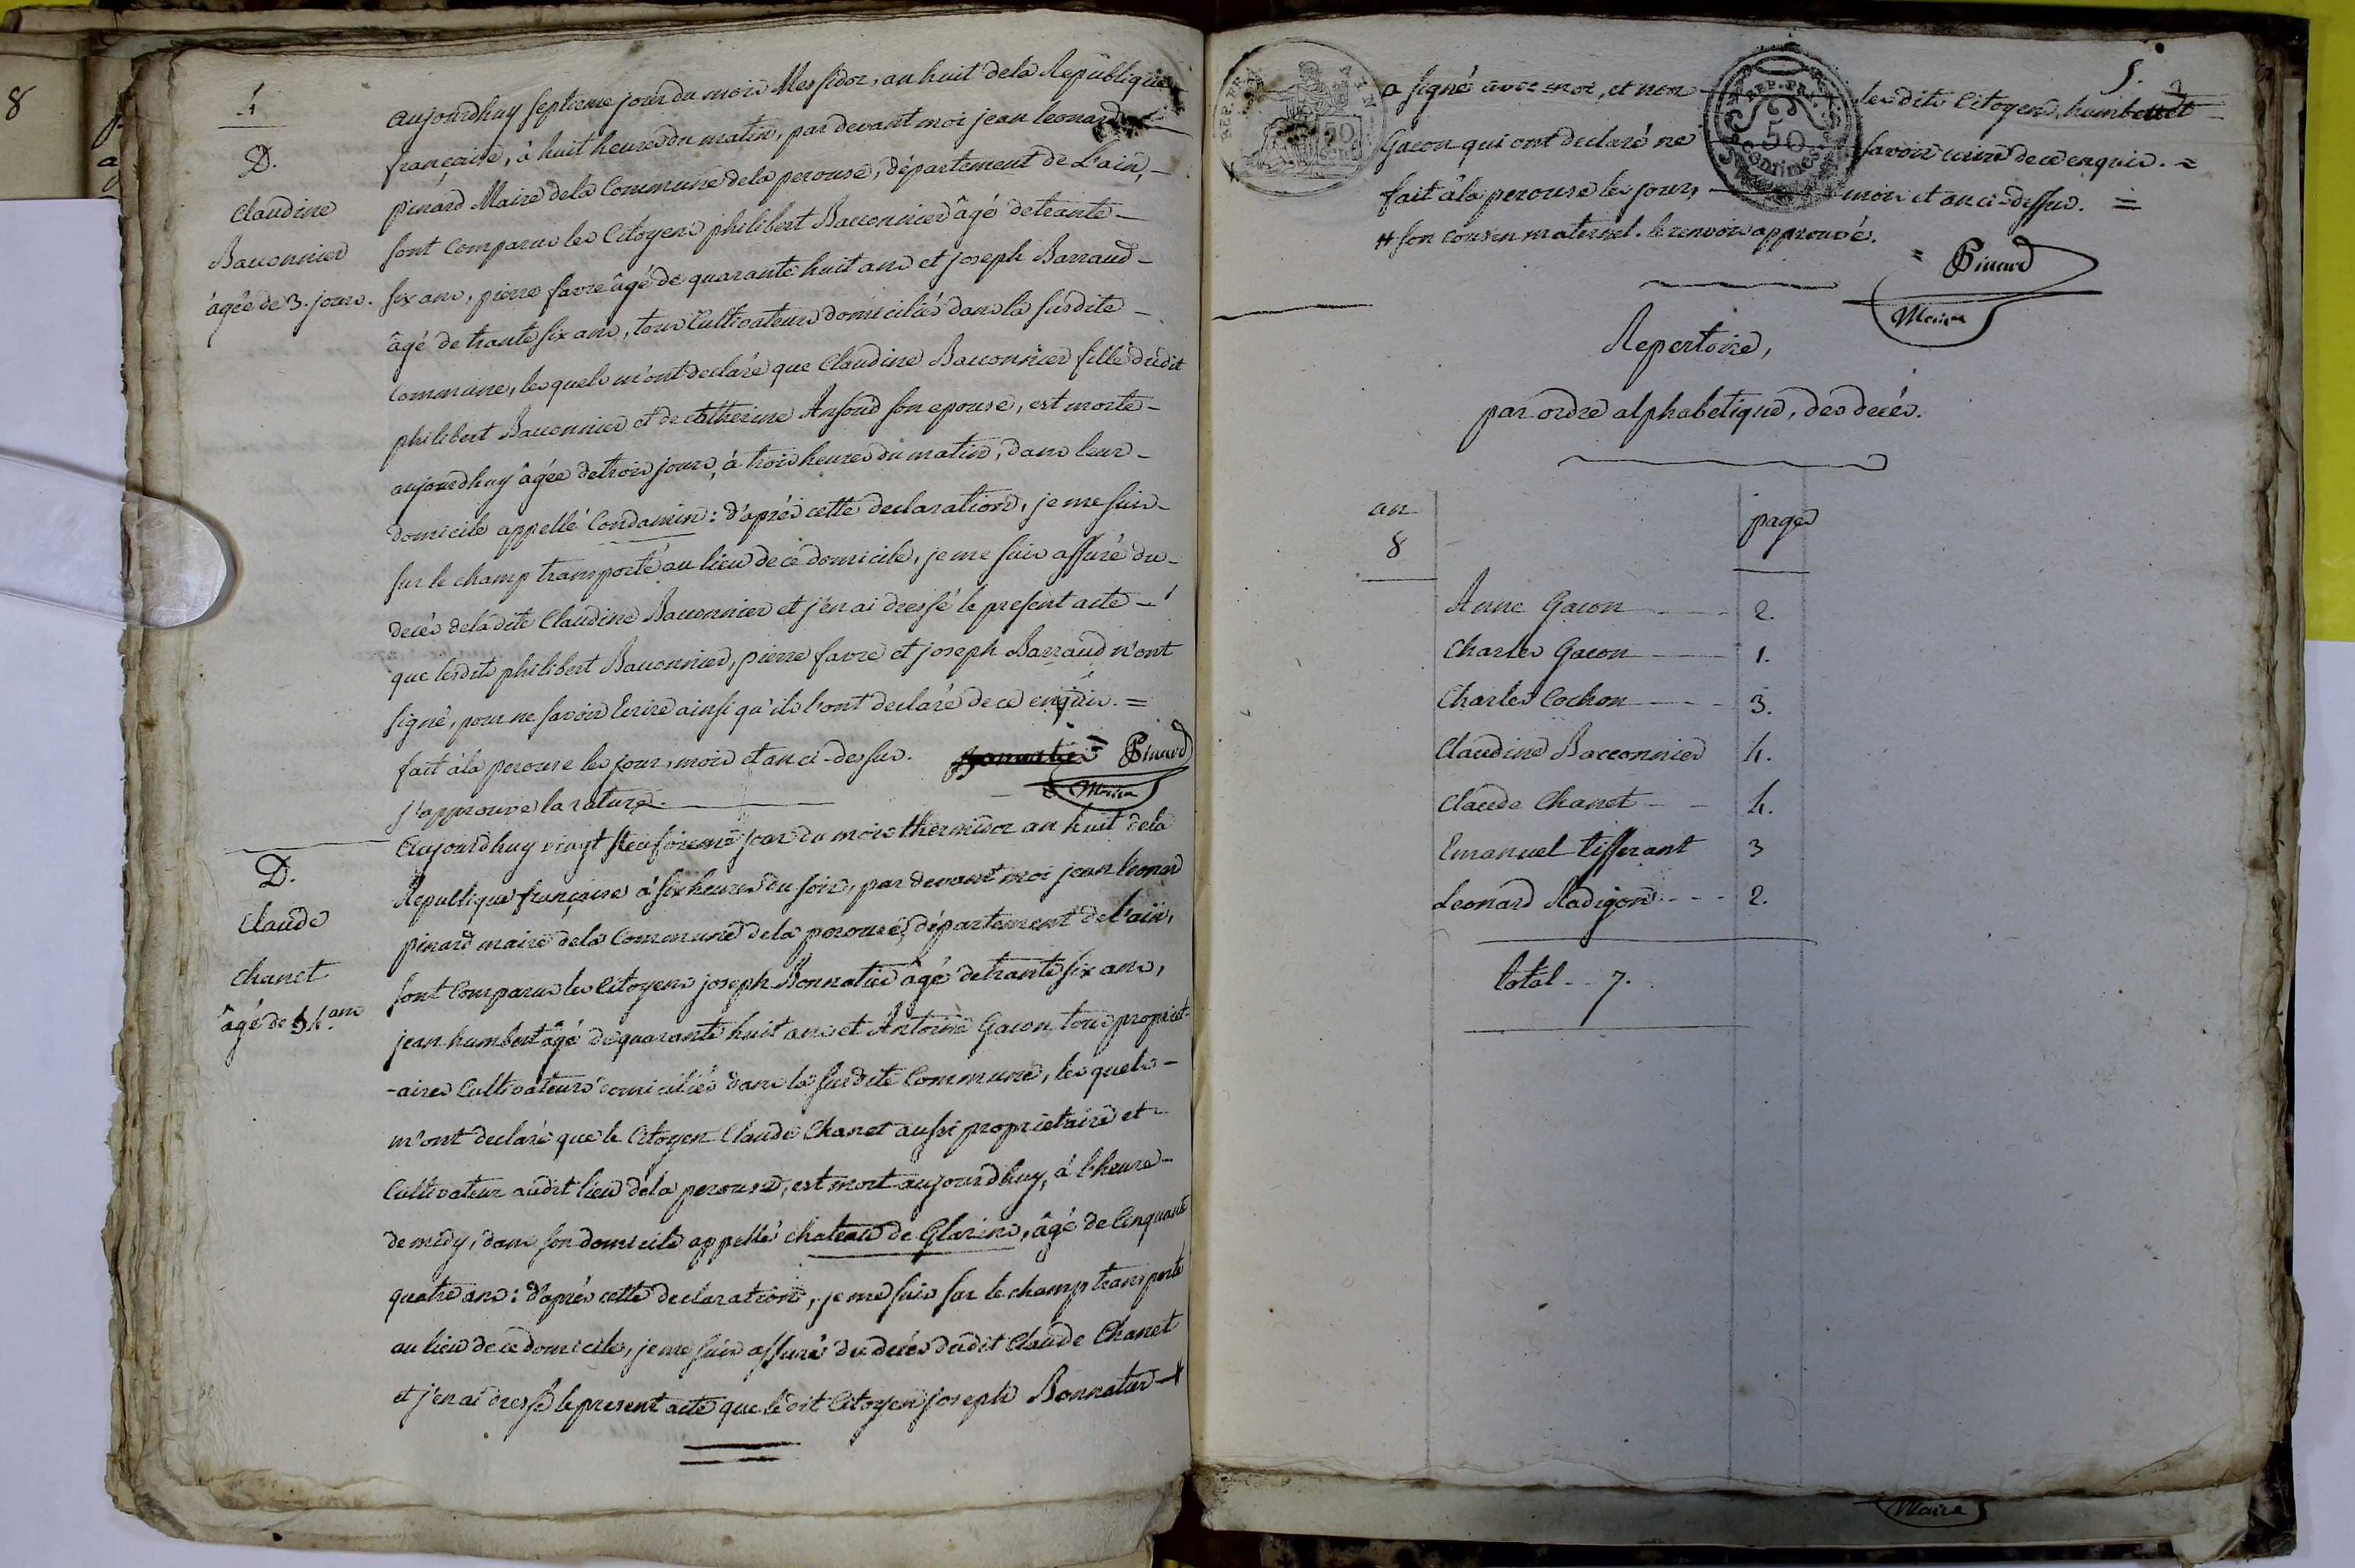 8
4
D.
Claudine
Bacconnier
âgée de 3. jours.
aujourdhuy septieme jour du mois Messidor, an huit dela Republique
française, à huit heures du matin, par devant moi jean leonard
pinard Maire dela Commune dela perouse, département de L'ain, -
sont comparus les Citoyens philibert Bacconnier âgé de trante -
six ans, pierre favre âgé de quarante huit ans et joseph Barraud -
âgé de trante six ans, tous Cultivateurs domiciliés dans la susdite -
Commune, lesquels m'ont declaré que Claudine Bacconnier fille dudit
philibert Bacconnier et de Catherine son epouse, est morte -
aujourdhuy âgée de trois jours, à trois heures du matin, dans leur -
domicile appellé Condamin : d'après cette declaration, je me suis -
sur le champ transporté au lieu de ce domicile, je me suis assuré du -
decés deladite Claudine Bacconnier et j'en ai dressé le present acte -
que lesdits philibert Bacconnier, pierre favre et joseph Barraud n'ont
signé, pour ne savoir Ecrire ainsi qu'ils l'ont declaré de ce enquis. =
fait à la perouse les jour, mois et an ci-dessus. = Pinard
Maire
j'approuve la rature.
D.
Claude
Chanet
âgé de 54. ans
Aujourdhuy vingt jour du mois thermidor an huit dela
Republique française à six heures du soir, par devant moi jean leonard
pinard maire dela Commune dela perouse, département de l'ain,
sont Comparus les Citoyens joseph Bonnatier âgé de trante six ans,
jean humbert âgé de quarante huit ans et Antoine Gacon tous propriet-
-aires Cultivateurs domiciliés dans la susdite Commune, lesquels -
m'ont declaré que le Citoyen Claude Chanet aussi proprietaire et -
Cultivateur audit lieu dela perouse, est mort aujourdhuy, à l'heure -
de midy, dans son domicile appellé chateau de Glarins, âgé de Cinquante
quatre ans : d'après cette declaration, je me suis sur le champ transporté
au lieu de ce domicile, je me suis assuré du decés dudit Claude Chanet
et j'en ai dressé le present acte que ledit Citoyen joseph Bonnatier #
5.
a signé avec moi, et non les dits Citoyens humbert et -
Gacon qui ont declaré ne savoir ecrire de ce enquis. =
fait à la perouse les jour, mois et an ci-dessus. =
# son cousin maternel. le renvoi approuvé.
= Pinard
Maire
REP. FRA.
50
REP. FRA.
50
Centimes
Repertoire,
par ordre alphabetique, des decés.
an
8
pages
Anne Gacon - - - 2.
Charles Gacon - - - 1.
Charles Cochon - - - 3.
Claudine Bacconnier 4.
Claude Chanet - - 4.
Emanuel tisserant 3
Leonard Radigon - - - 2.
total - - 7.
Maire